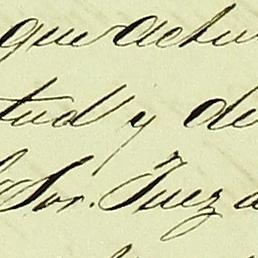 que actu
tud y de
Sor. Juez a